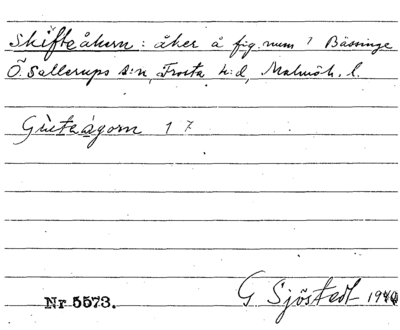 Skifteåkern: åker å fig. num 1 Bässinge
Ö. Sallerups s:n, Frosta h:d, Malmöh. l.
1 7
G Sjöstedt 1940
Nr 5573.